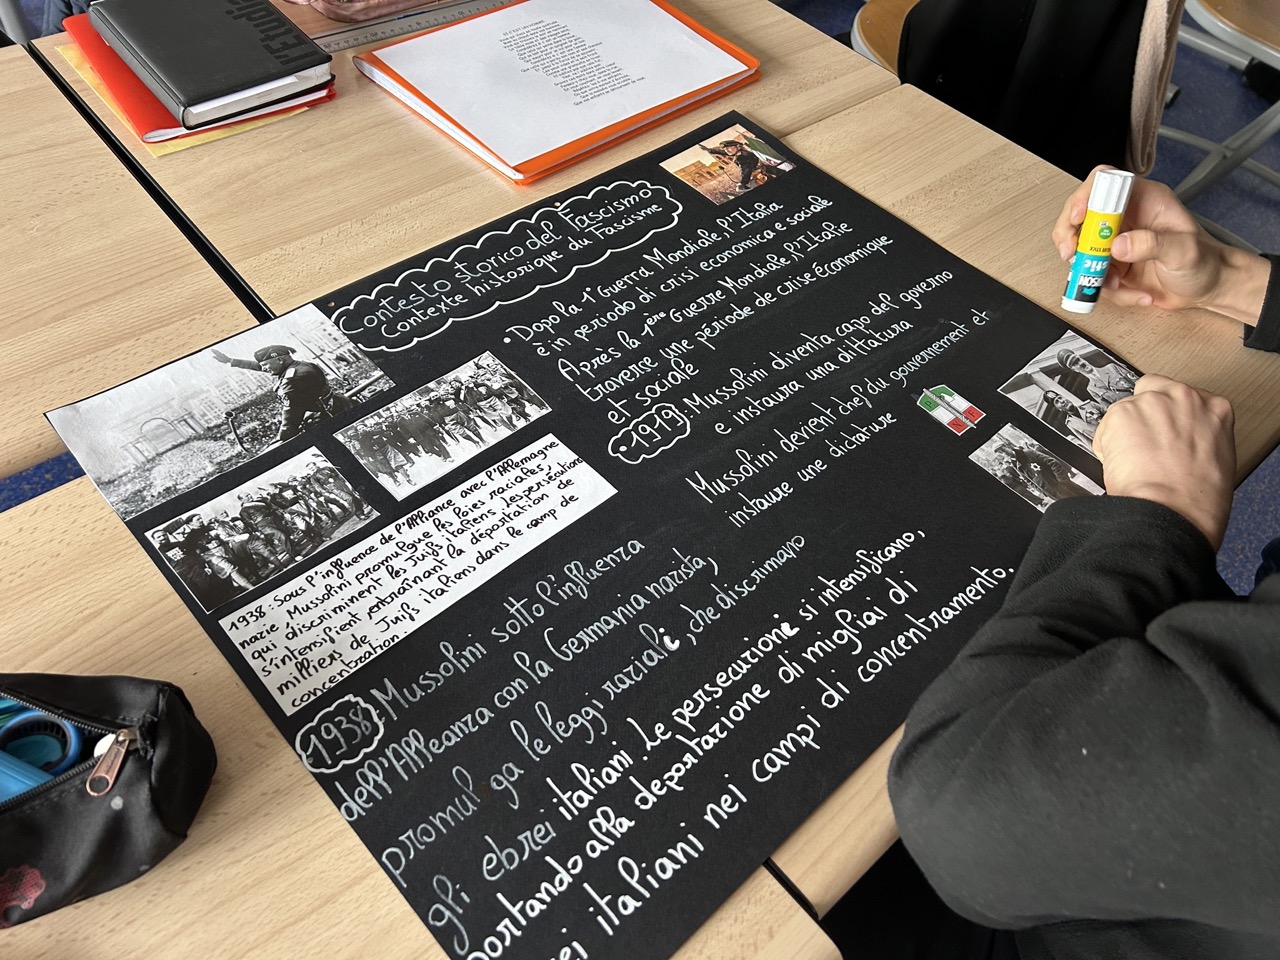 l'Étudiant
SI C'EST UN HOMME
Contesto storico del Fascismo
Contexte historique du Fascisme
• Dopo la 1° Guerra Mondiale, l'Italia
è in periodo di crisi economica e sociale
Après la 1ère Guerre Mondiale, l'Italie
traverse une période de crise économique
et sociale
• 1919: Mussolini diventa capo del governo
e instaura una dittatura
Mussolini devient chef du gouvernement et
instaure une dictature
P
N F
1938: Sous l'influence de l'Alliance avec l'Allemagne
nazie, Mussolini promulgue les loies raciales,
qui discriminent les Juifs italiens. Les persécutions
s'intensifient, entraînant la déportation de
milliers de Juifs italiens dans le camp de
concentration.
1938: Mussolini sotto l'influenza
dell'Alleanza con la Germania nazista,
promulga le leggi raziali, che discriminano
gli ebrei italiani. Le persecuzioni si intensificano,
portando alla deportazione di migliai di
rei italiani nei campi di concentramento.